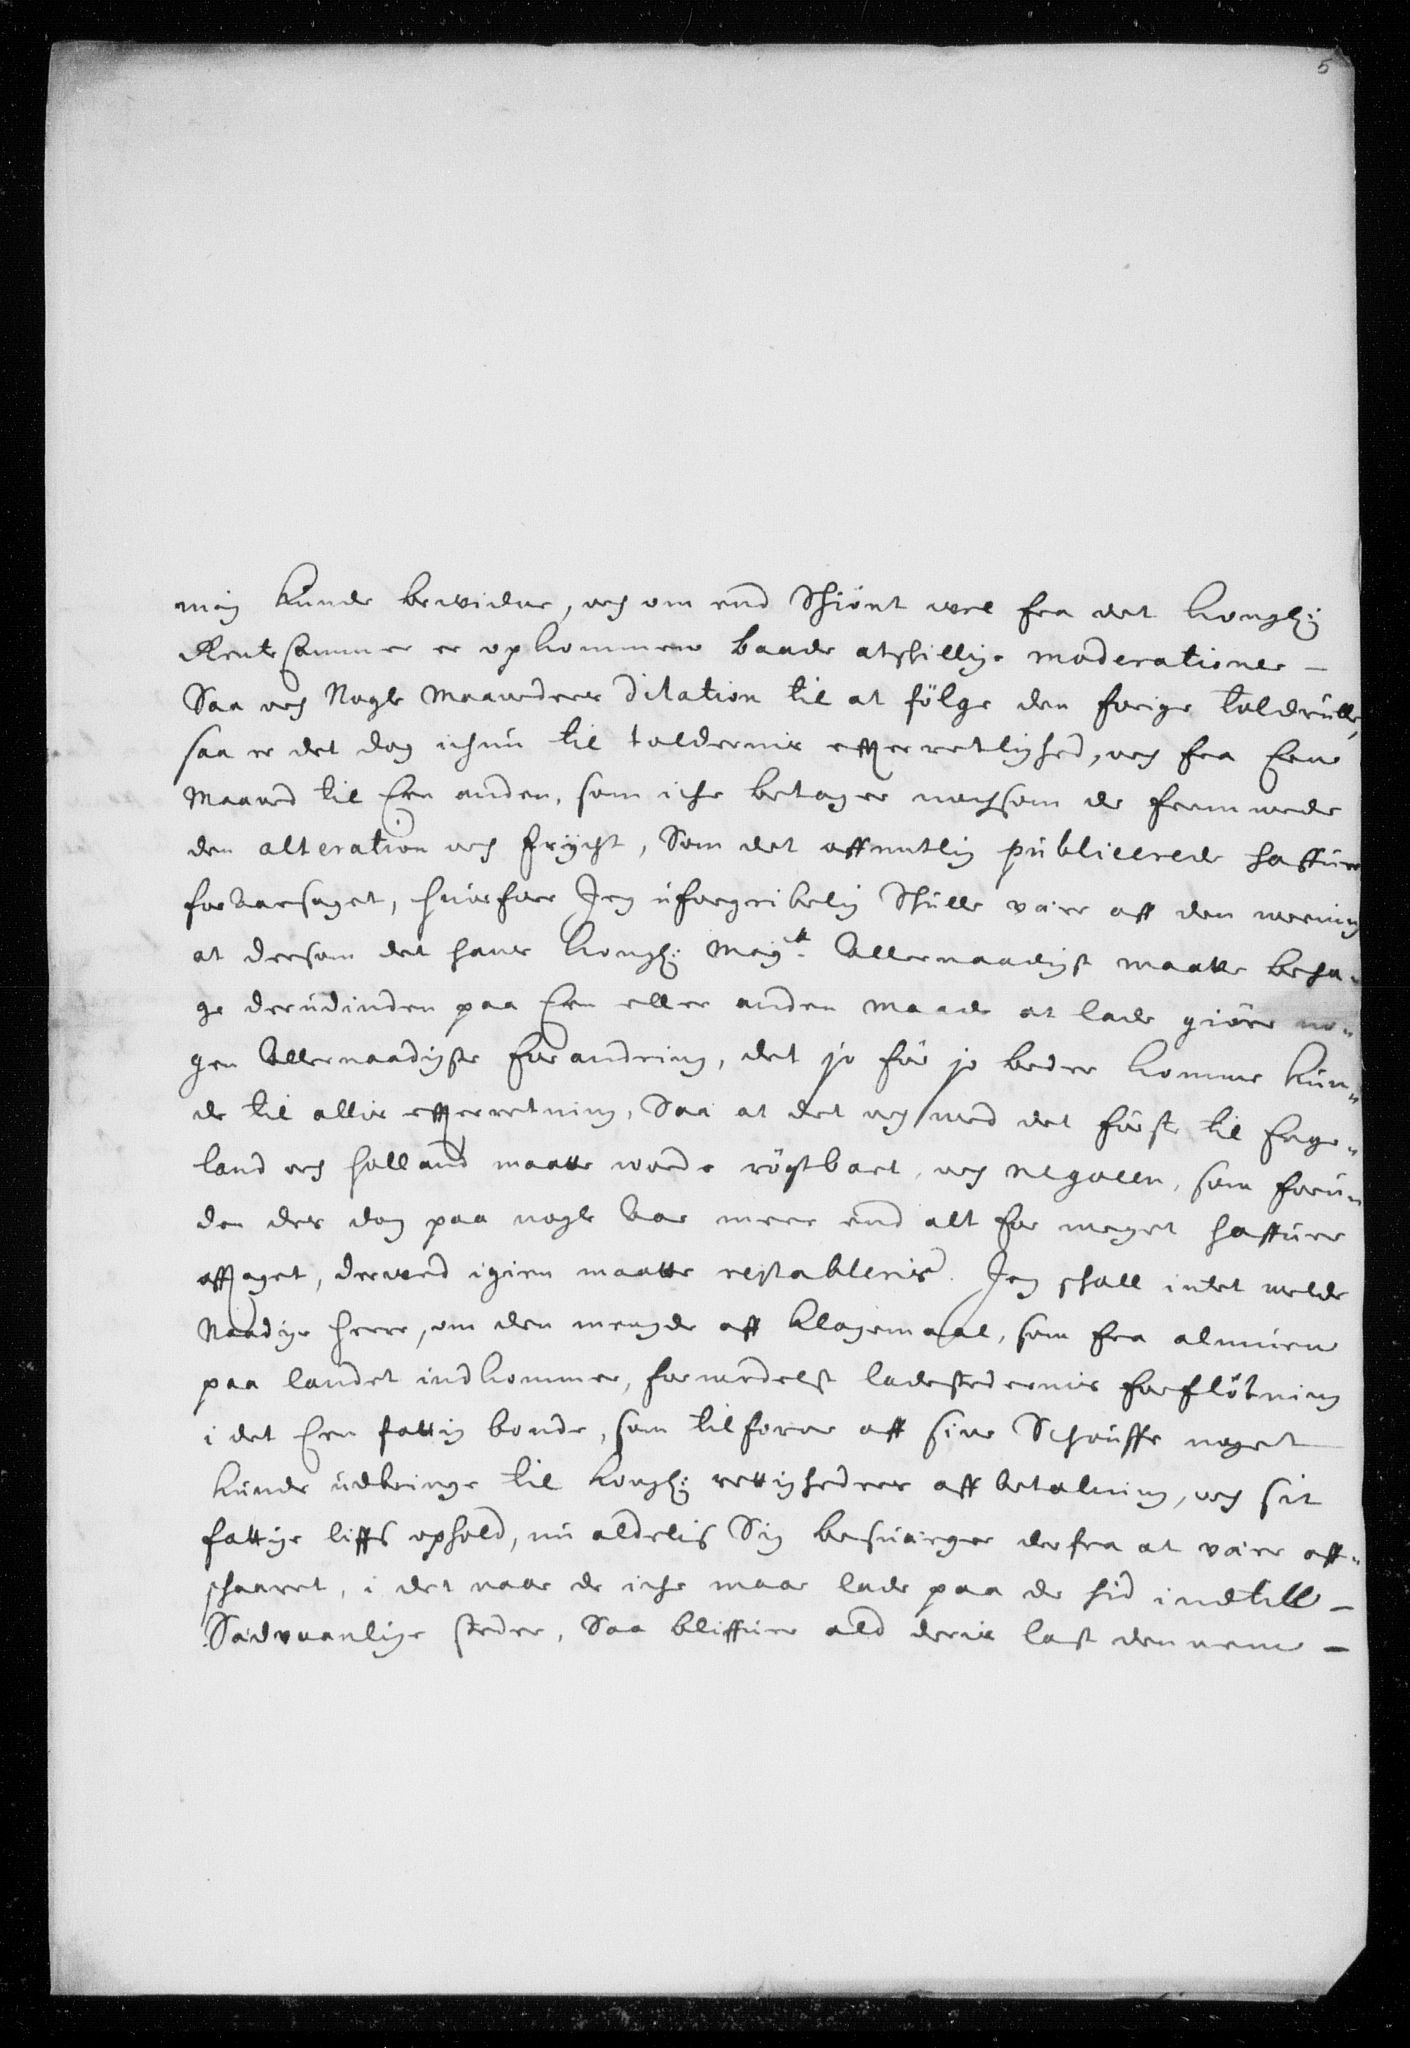 5
mig kunde bevidne, och om end Schiönt vel fra det Kongl:
RenteCammer er opkommen baade atskillige moderationer —
Saa och Nogle Maaneders Dilation til at fölge den forige toldrulle,
saa er det dog ichun til toldernis effterretlighed, och fra Een
Maaned til Een anden, som iche betager nochsom de fremmede
den alteration och frycht, Som det offentlig publicerede haffuer
foraarsaget, huorfore Jeg uforgribelig Schulle være aff den mening
at dersom det hans Kongl: Mayt. Allernaadigst maatte beha-
ge derudinden paa Een eller anden maade at lade giöre no-
gen Allernaadigste forandring, det jo för jo bedre komme kun-
de til allis effterretning, Saa at det och med det förste til Enge-
land och Holland maatte worde röchtbart, och negocen, som forv-
den des dog paa nogle Aar meere end alt for meget haffuer
afftaget, derved igien maatte restableris. Jeg schall intet melde
Naadige Herre, om den mengde aff klagemaal, som fra almuen
paa landet indkommer, formedelst ladestedernis forflötning
i det Een fattig bonde, som tilforne aff sine Schouffe noget
kunde udbringe til Kongl: rettigheders aff betalning, och sit
fattige liffs ophold, nu aldelis Sig besuerger derfra at være aff-
schaaret, i det naar de iche maa lade paa de hid indtill —
Sædvaanlige steder, Saa bliffuer ald deris last dennem —